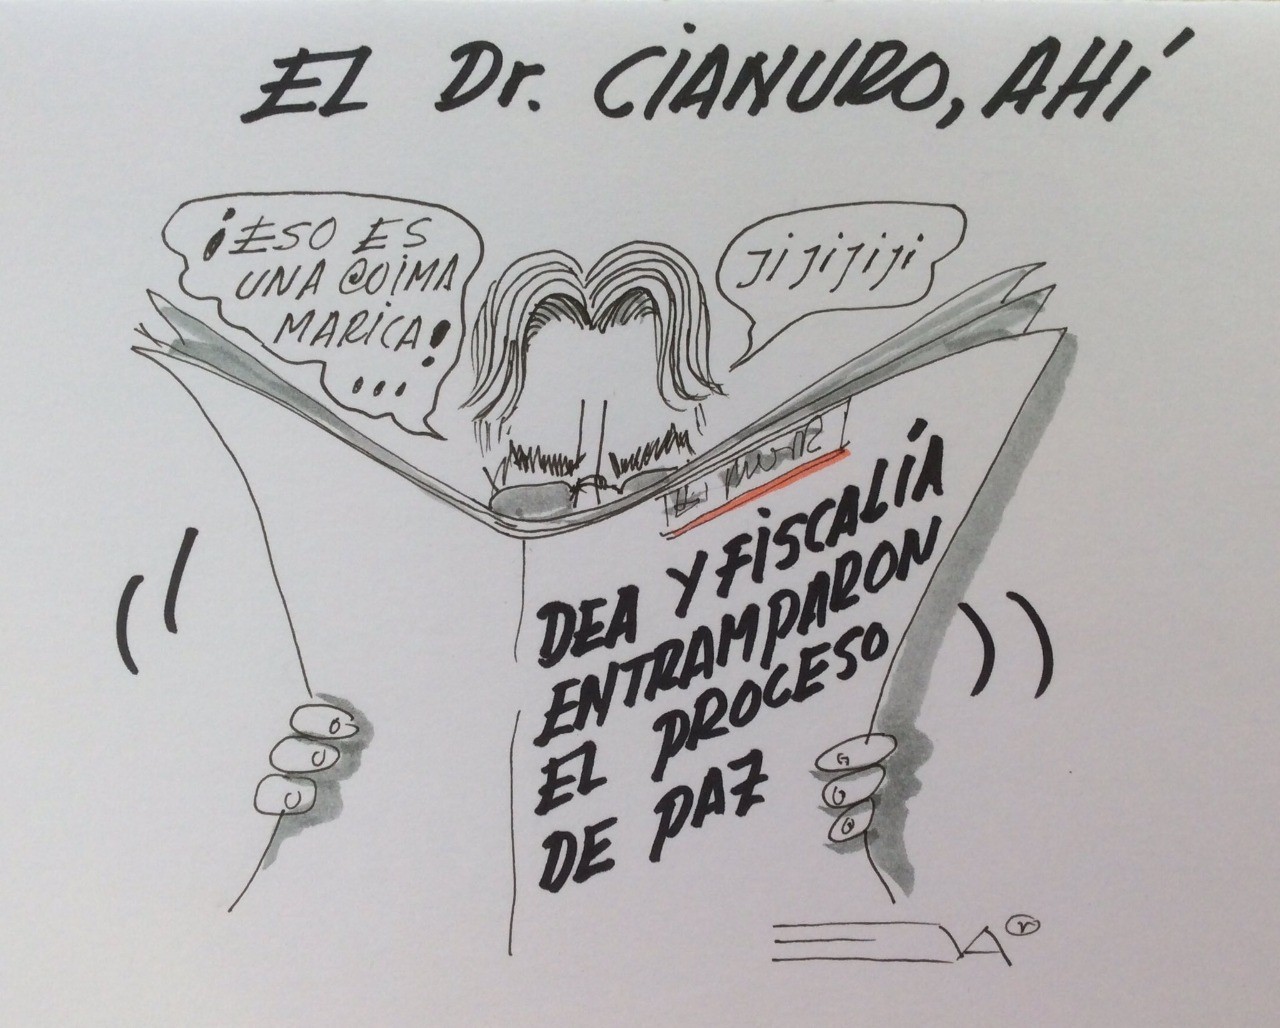 EL Dr. CIANURO, AHÍ
¡ESO ES
UNA @OIMA
MARICA!
...
JIJIJIJI
DEA Y FISCALÍA
ENTRAMPARON
EL PROCESO
DE PAZ